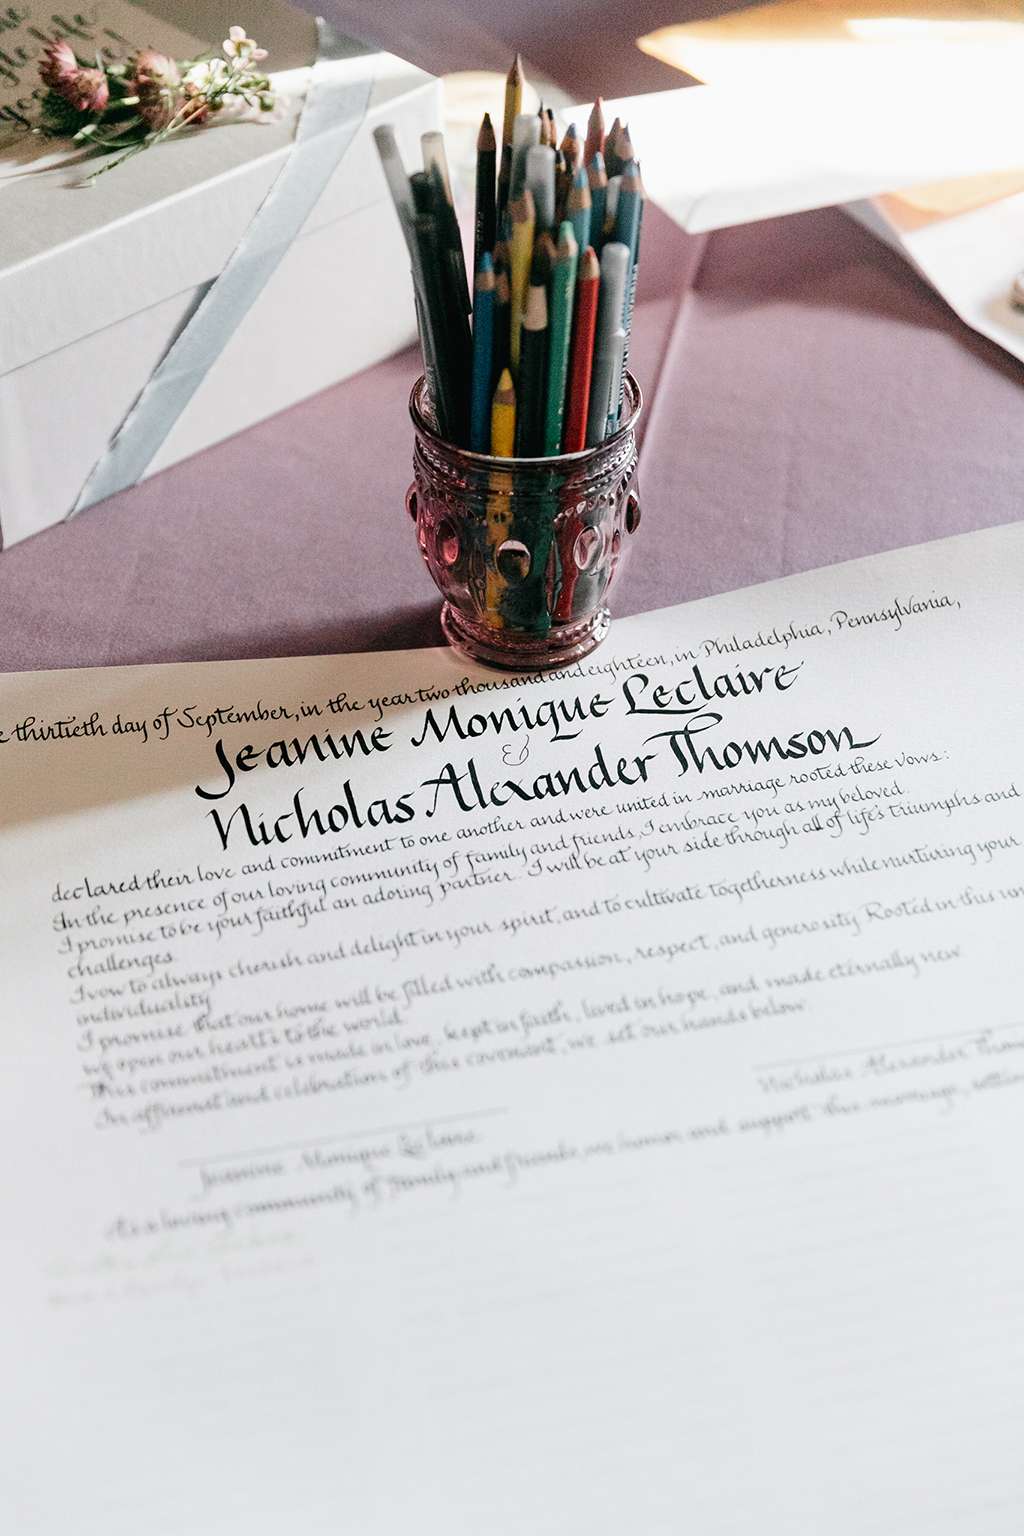 thirtieth day of September, in the year two thousand and eighteen, in Philadelphia, Pennsylvania,
Jeanine Monique Leclaire
&
Nicholas Alexander Thomson
declared their love and commitment to one another and were united in marriage rooted these vows:
In the presence of our loving community of family and friends, I embrace you as my beloved.
I promise to be your faithful an adoring partner. I will be at your side through all of life's triumphs and
challenges.
I vow to always cherish and delight in your spirit, and to cultivate togetherness while nurturing your
individuality
I promise that our home will be filled with compassion, respect, and generosity. Rooted in this
we open our hearts to the world.
This commitment is made in love, kept in faith, lived in hope, and made eternally new.
In affirmation and celebration of this covenant, we set our hands below.
Nicholas Alexander
Jeanine Monique Leclaire
As a loving community of family and friends, we honor and support this marriage,